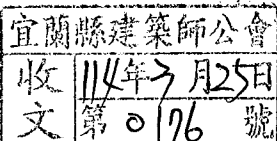 宜蘭縣建築師公會
收文
114年3月25日
第0176號